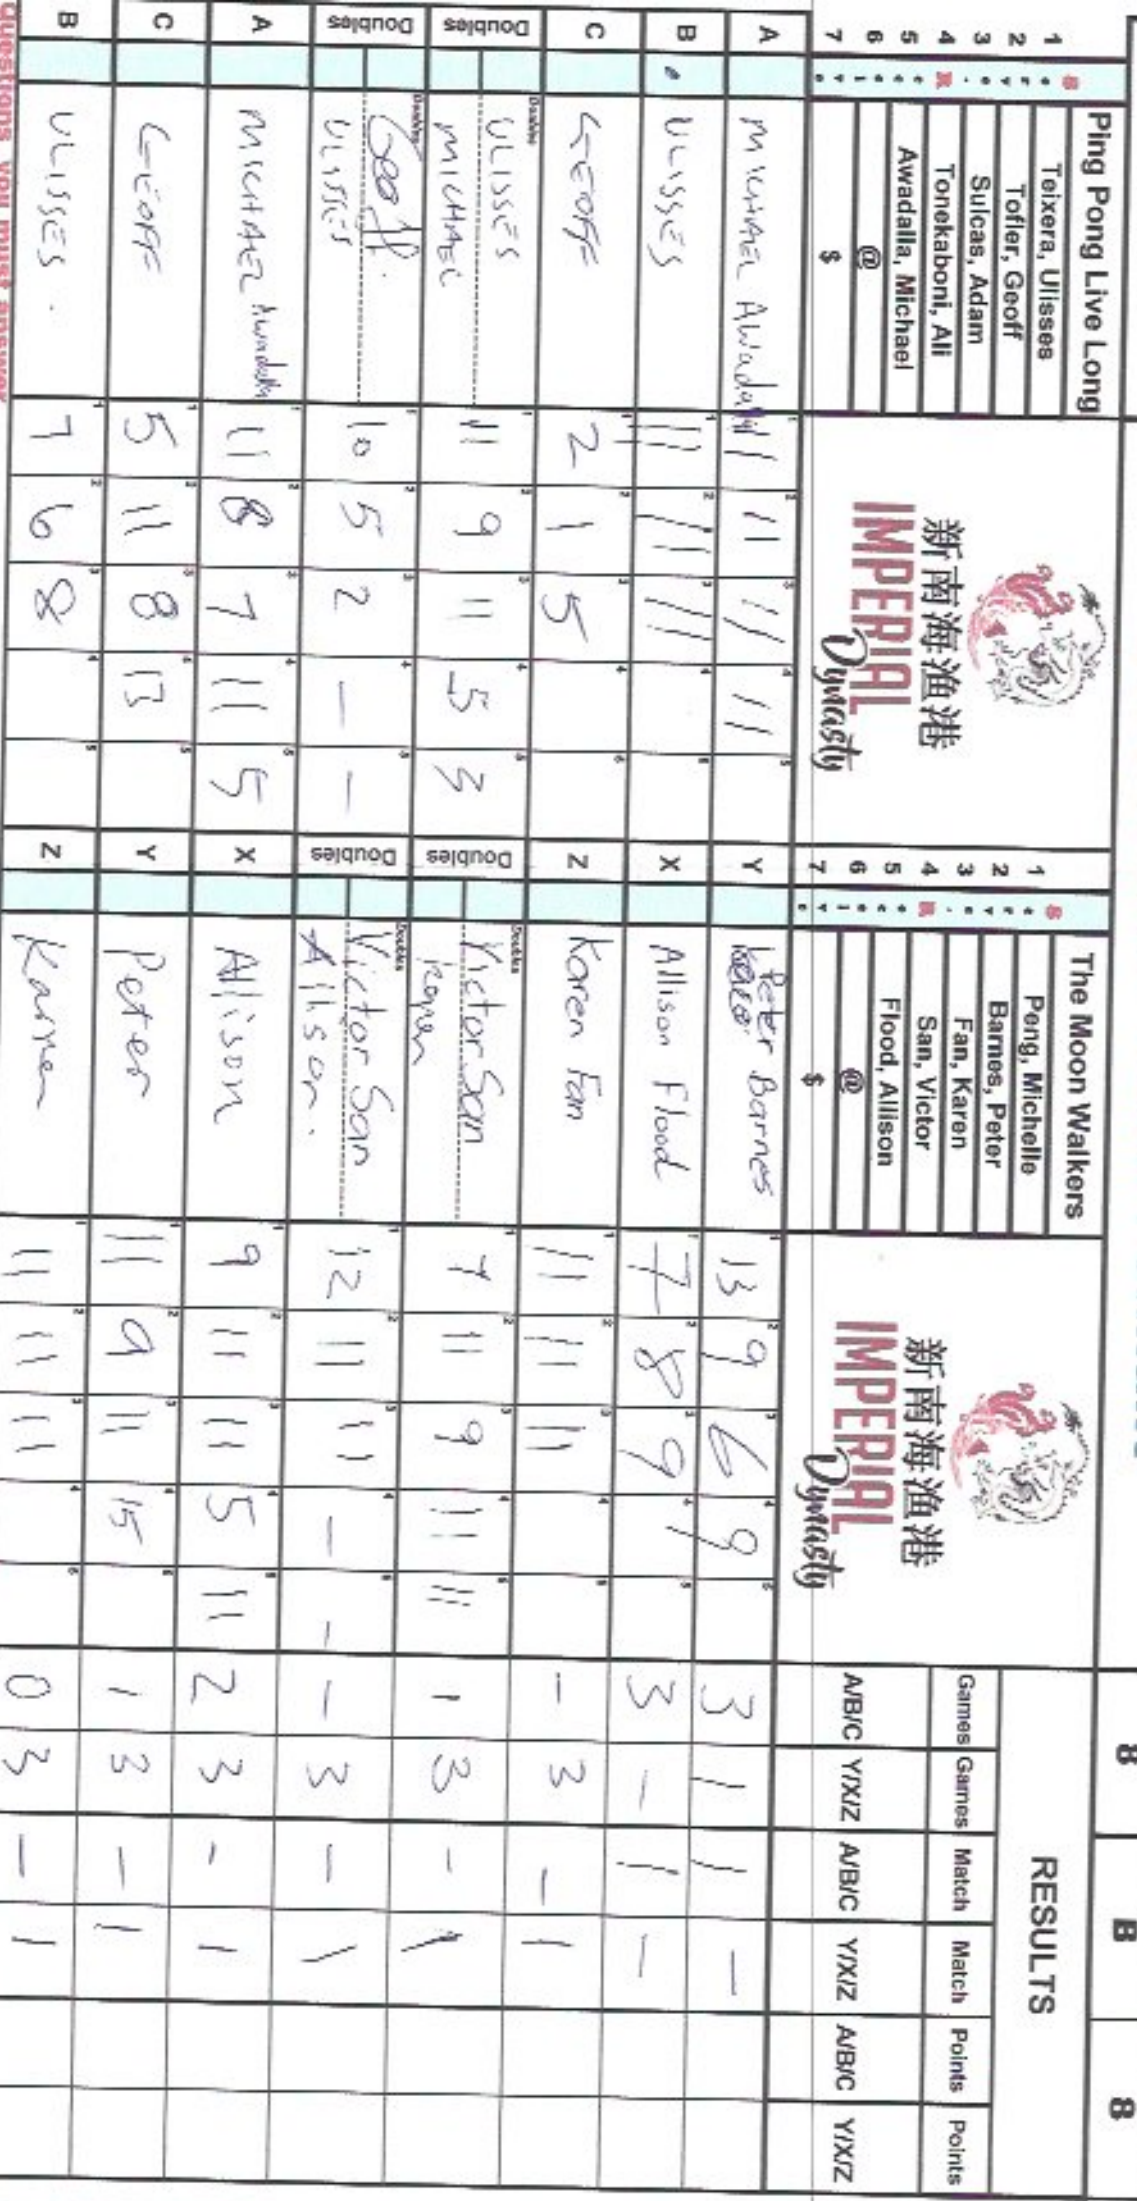 8 B 8
Ping Pong Live Long
1 Teixera, Ulisses
2 Tofler, Geoff
3 Sulcas, Adam
4 R Tonekaboni, Ali
5 Awadalla, Michael
6 @
7 $
新南海渔港
IMPERIAL
Dynasty
The Moon Walkers
1 Peng, Michelle
2 Barnes, Peter
3 Fan, Karen
4 R San, Victor
5 Flood, Allison
6 @
7 $
新南海渔港
IMPERIAL
Dynasty
RESULTS
Games Games Match Match Points Points
A/B/C Y/X/Z A/B/C Y/X/Z A/B/C Y/X/Z
A MICHAEL Awadalla 11 11 11 Y Peter Barnes 13 9 6 9 3 1 1 -
B ULISSES 11 11 11 X Allison Flood 7 8 9 3 - 1 -
C GEOFF 2 1 5 Z Karen Fan 11 11 11 - 3 - 1
Doubles ULISSES 11 9 11 5 3 Doubles Victor San 7 11 9 11 11 1 3 - 1
MICHAEL Karen
Doubles Geoff. 10 5 2 - - Doubles Victor San 12 11 11 - - - 3 - 1
ULISSES Allison.
A MICHAEL Awadalla 11 8 7 11 5 X Allison 9 11 11 5 11 2 3 - 1
C GEOFF 5 11 8 13 Y Peter 11 9 11 15 1 3 - 1
B ULISSES. 7 6 8 Z Karen 11 11 11 0 3 - 1
questions you must answer